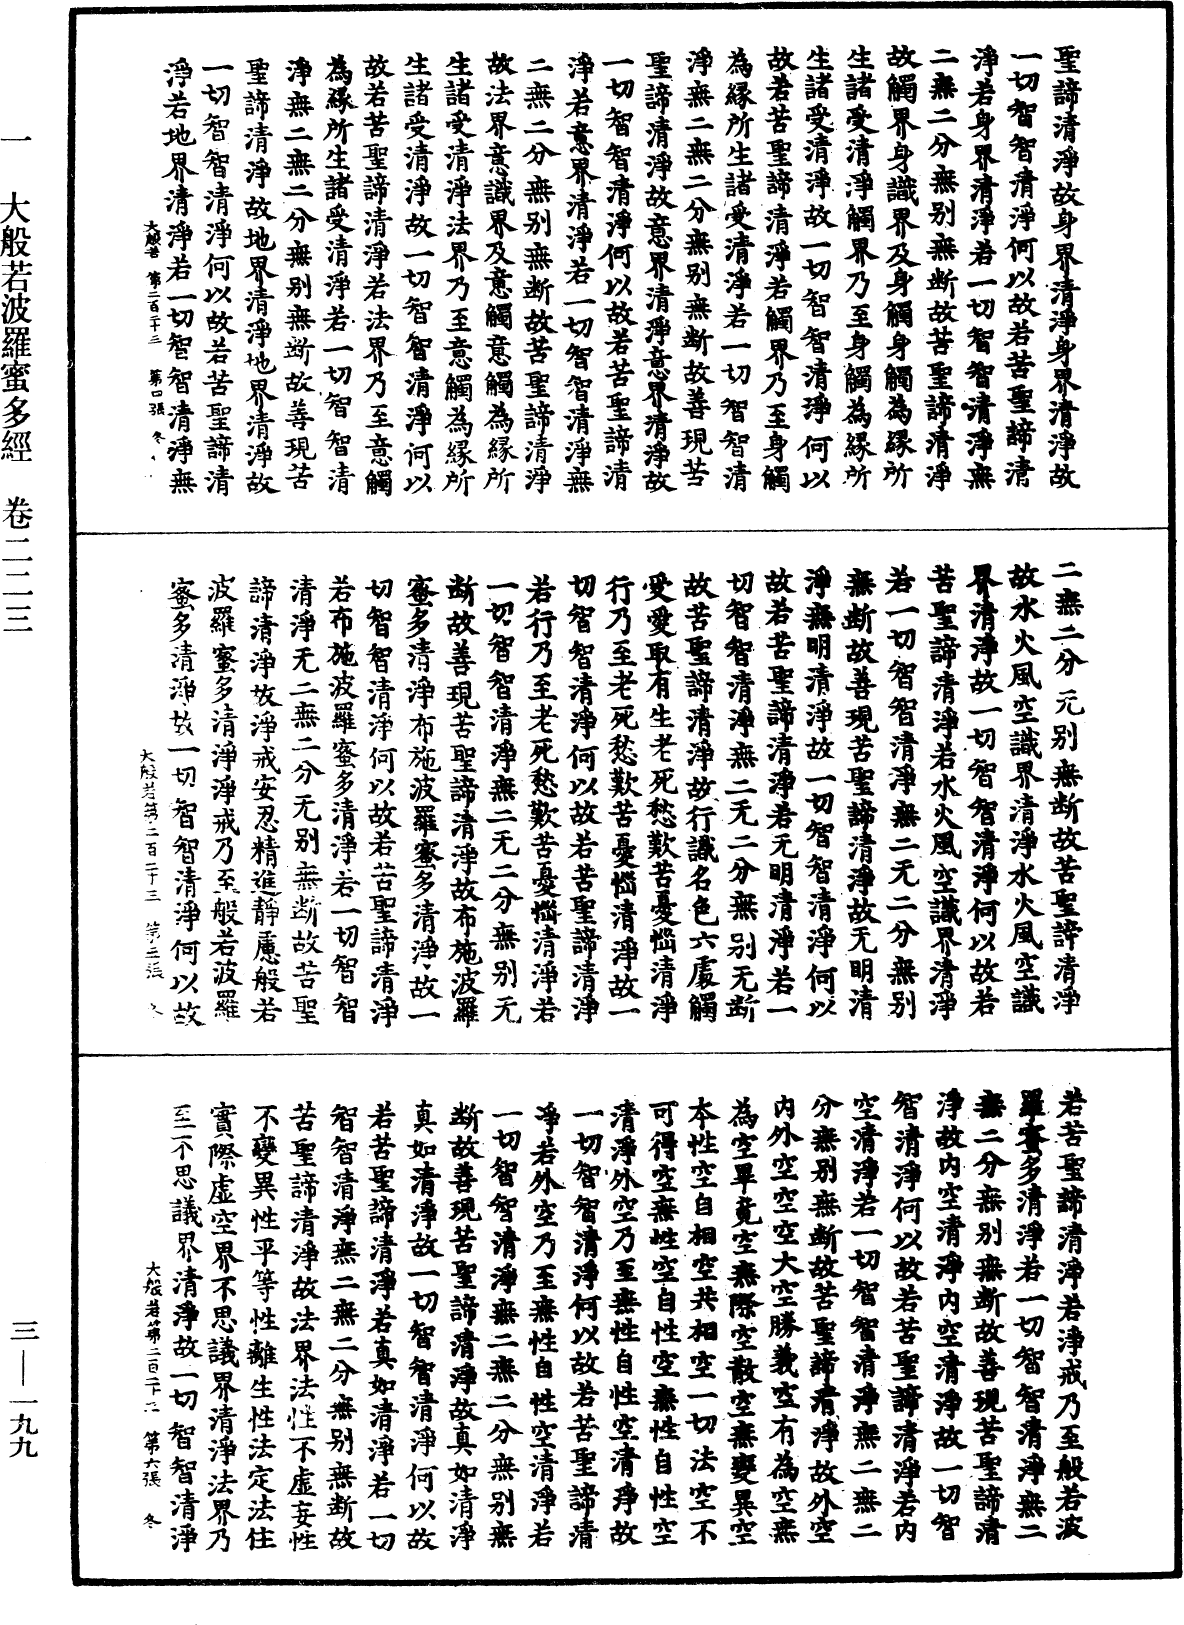 聖諦清淨故身界清淨身界清淨故
一切智智清淨何以故若苦聖諦清
淨若身界清淨若一切智智清淨無
二無二分無別無斷故苦聖諦清淨
故觸界身識界及身觸身觸為縁所
生諸受清淨觸界乃至身觸為縁所
生諸受清淨故一切智智清淨何以
故若苦聖諦清淨若觸界乃至身觸
為縁所生諸受清淨若一切智智清
淨無二無二分無別無斷故善現苦
聖諦清淨故意界清淨意界清淨故
一切智智清淨何以故若苦聖諦清
淨若意界清淨若一切智智清淨無
二無二分無別無斷故苦聖諦清淨
故法界意識界及意觸意觸為縁所
生諸受清淨法界乃至意觸為縁所
生諸受清淨故一切智智清淨何以
故若苦聖諦清淨若法界乃至意觸
為縁所生諸受清淨若一切智智清
淨無二無二分無別無斷故善現苦
聖諦清淨故地界清淨地界清淨故
一切智智清淨何以故若苦聖諦清
淨若地界清淨若一切智智清淨無
大般若 第二百二十三 第四張 冬
二無二分无別無斷故苦聖諦清淨
故水火風空識界清淨水火風空識
界清淨故一切智智清淨何以故若
苦聖諦清淨若水火風空識界清淨
若一切智智清淨無二无二分無別
無斷故善現苦聖諦清淨故无明清
淨無明清淨故一切智智清淨何以
故若苦聖諦清淨若无明清淨若一
切智智清淨無二无二分無別无斷
故苦聖諦清淨故行識名色六處觸
受愛取有生老死愁歎苦憂惱清淨
行乃至老死愁歎苦憂惱清淨故一
切智智清淨何以故若苦聖諦清淨
若行乃至老死愁歎苦憂惱清淨若
一切智智清淨無二无二分無別无
斷故善現苦聖諦清淨故布施波羅
蜜多清淨布施波羅蜜多清淨故一
切智智清淨何以故若苦聖諦清淨
若布施波羅蜜多清淨若一切智智
清淨无二無二分无別無斷故苦聖
諦清淨故淨戒安忍精進靜慮般若
波羅蜜多清淨淨戒乃至般若波羅
蜜多清淨故一切智智清淨何以故
大般若第二百二十三 第五張 冬
若苦聖諦清淨若淨戒乃至般若波
羅蜜多清淨若一切智智清淨無二
無二分無別無斷故善現苦聖諦清
淨故内空清淨内空清淨故一切智
智清淨何以故若苦聖諦清淨若内
空清淨若一切智智清淨無二無二
分無別無斷故苦聖諦清淨故外空
内外空空空大空勝義空有為空無
為空畢竟空無際空散空無變異空
本性空自相空共相空一切法空不
可得空無性空自性空無性自性空
清淨外空乃至無性自性空清淨故
一切智智清淨何以故若苦聖諦清
淨若外空乃至無性自性空清淨若
一切智智清淨無二無二分無別無
斷故善現苦聖諦清淨故真如清淨
真如清淨故一切智智清淨何以故
若苦聖諦清淨若真如清淨若一切
智智清淨無二無二分無別無斷故
苦聖諦清淨故法界法性不虛妄性
不變異性平等性離生性法定法住
實際虛空界不思議界清淨法界乃
至不思議界清淨故一切智智清淨
大般若第二百二十三 第六張 冬
一 大般若波羅蜜多經 卷二二三
三—一九九